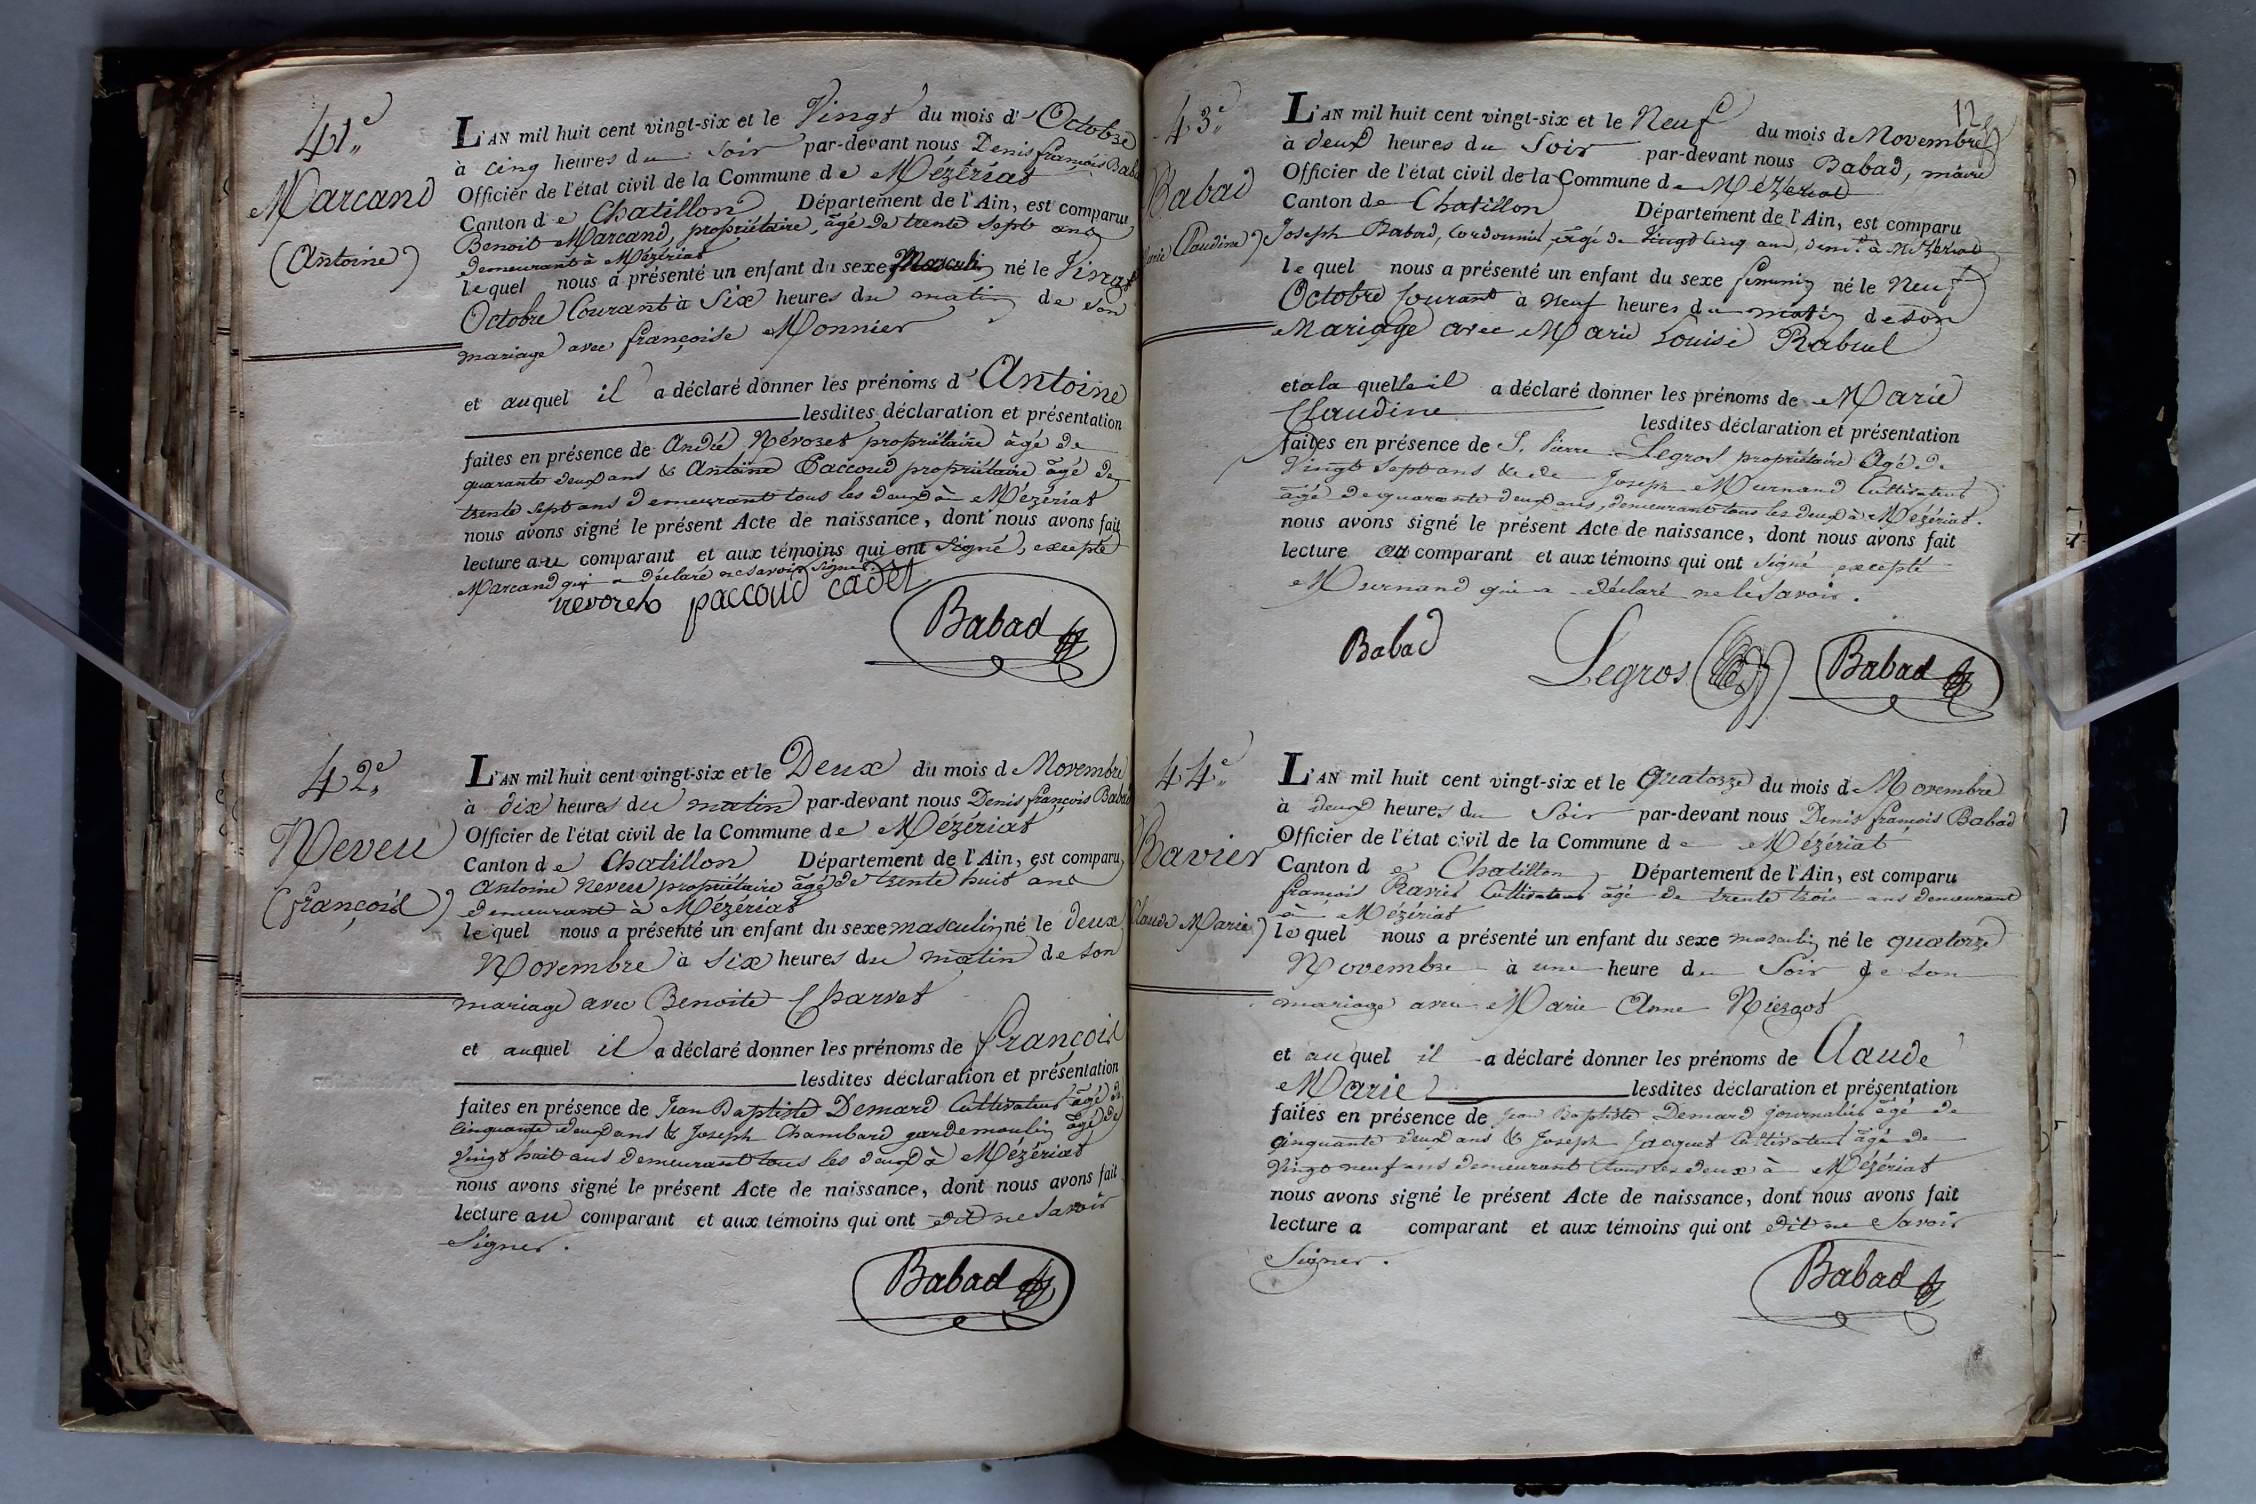 41e
Marcand
(Antoine)
L'AN mil huit cent vingt-six et le Vingt du mois d' Octobre
à cinq heures du soir par-devant nous Denis françois Babad
Officier de l'état civil de la Commune de Mézériat
Canton de Chatillon Département de l'Ain, est comparu
Benoit Marcand, propriétaire, âgé de trente sept ans
demeurant à Mézériat
lequel nous a présenté un enfant du sexe Masculin né le Vingt
Octobre Courant à Six heures du matin de son
mariage avec françoise Monnier
et auquel il a déclaré donner les prénoms d' Antoine
lesdites déclaration et présentation
faites en présence de André Névoret propriétaire âgé de
quarante deux ans & Antoine Paccoud propriétaire âgé de
trente sept ans demeurant tous les deux à Mézériat
nous avons signé le présent Acte de naissance, dont nous avons fait
lecture au comparant et aux témoins qui ont Signé, excepté
Marcand qui a déclaré ne savoir signer.
nevoret paccoud cadet
Babad
42e
Neveu
(françois)
L'AN mil huit cent vingt-six et le Deux du mois d Novembre
à dix heures du matin par-devant nous Denis françois Babad
Officier de l'état civil de la Commune de Mézériat
Canton de Chatillon Département de l'Ain, est comparu
Antoine Neveu propriétaire âgé de trente huit ans
demeurant à Mézériat
lequel nous a présenté un enfant du sexe masculin né le deux
Novembre à six heures du matin de son
mariage avec Benoite Charvet
et auquel il a déclaré donner les prénoms de françois
lesdites déclaration et présentation
faites en présence de Jean Baptiste Demard Cultivateur âgé de
Cinquante deux ans & Joseph Chambard garde moulin âgé de
Vingt huit ans demeurant tous les deux à Mézériat
nous avons signé le présent Acte de naissance, dont nous avons fait
lecture au comparant et aux témoins qui ont dit ne Savoir
Signer.
Babad
43e
Babad
Marie Claudine)
L'AN mil huit cent vingt-six et le Neuf du mois de Novembre
à deux heures du Soir par-devant nous Babad, maire
Officier de l'état civil de la Commune de Mézériat
Canton de Chatillon Département de l'Ain, est comparu
Joseph Babad, Cordonnier âgé de Vingt cinq ans, demt. à Mézériat
lequel nous a présenté un enfant du sexe féminin né le Neuf
Octobre Courant à Neuf heures du matin de son
Mariage avec Marie Louise Rabuel
et a la quelle il a déclaré donner les prénoms de Marie
Claudine lesdites déclaration et présentation
faites en présence de S. Pierre Legros propriétaire âgé de
Vingt sept ans & de Joseph Murnand Cultivateur
âgé de quarante deux ans, demeurant tous les deux à Mézériat.
nous avons signé le présent Acte de naissance, dont nous avons fait
lecture au comparant et aux témoins qui ont Signé excepté
Murnand qui a déclaré ne le Savoir.
Babad Legros Babad
44e
Ravier
Claude Marie)
L'AN mil huit cent vingt-six et le Quatorze du mois de Novembre
à deux heures du Soir par-devant nous Denis françois Babad
Officier de l'état civil de la Commune de Mézériat
Canton de Chatillon Département de l'Ain, est comparu
françois Ravier Cultivateur âgé de trente trois ans demeurant
à Mézériat
lequel nous a présenté un enfant du sexe masculin né le quatorze
Novembre à une heure du Soir de son
mariage avec Marie Anne Niezgot
et auquel il a déclaré donner les prénoms de Claude
Marie lesdites déclaration et présentation
faites en présence de Jean Baptiste Demard journalier âgé de
cinquante deux ans & Joseph Jacquet Cultivateur âgé de
Vingt neuf ans demeurant tous les deux à Mézériat
nous avons signé le présent Acte de naissance, dont nous avons fait
lecture a comparant et aux témoins qui ont dit ne Savoir
Signer.
Babad